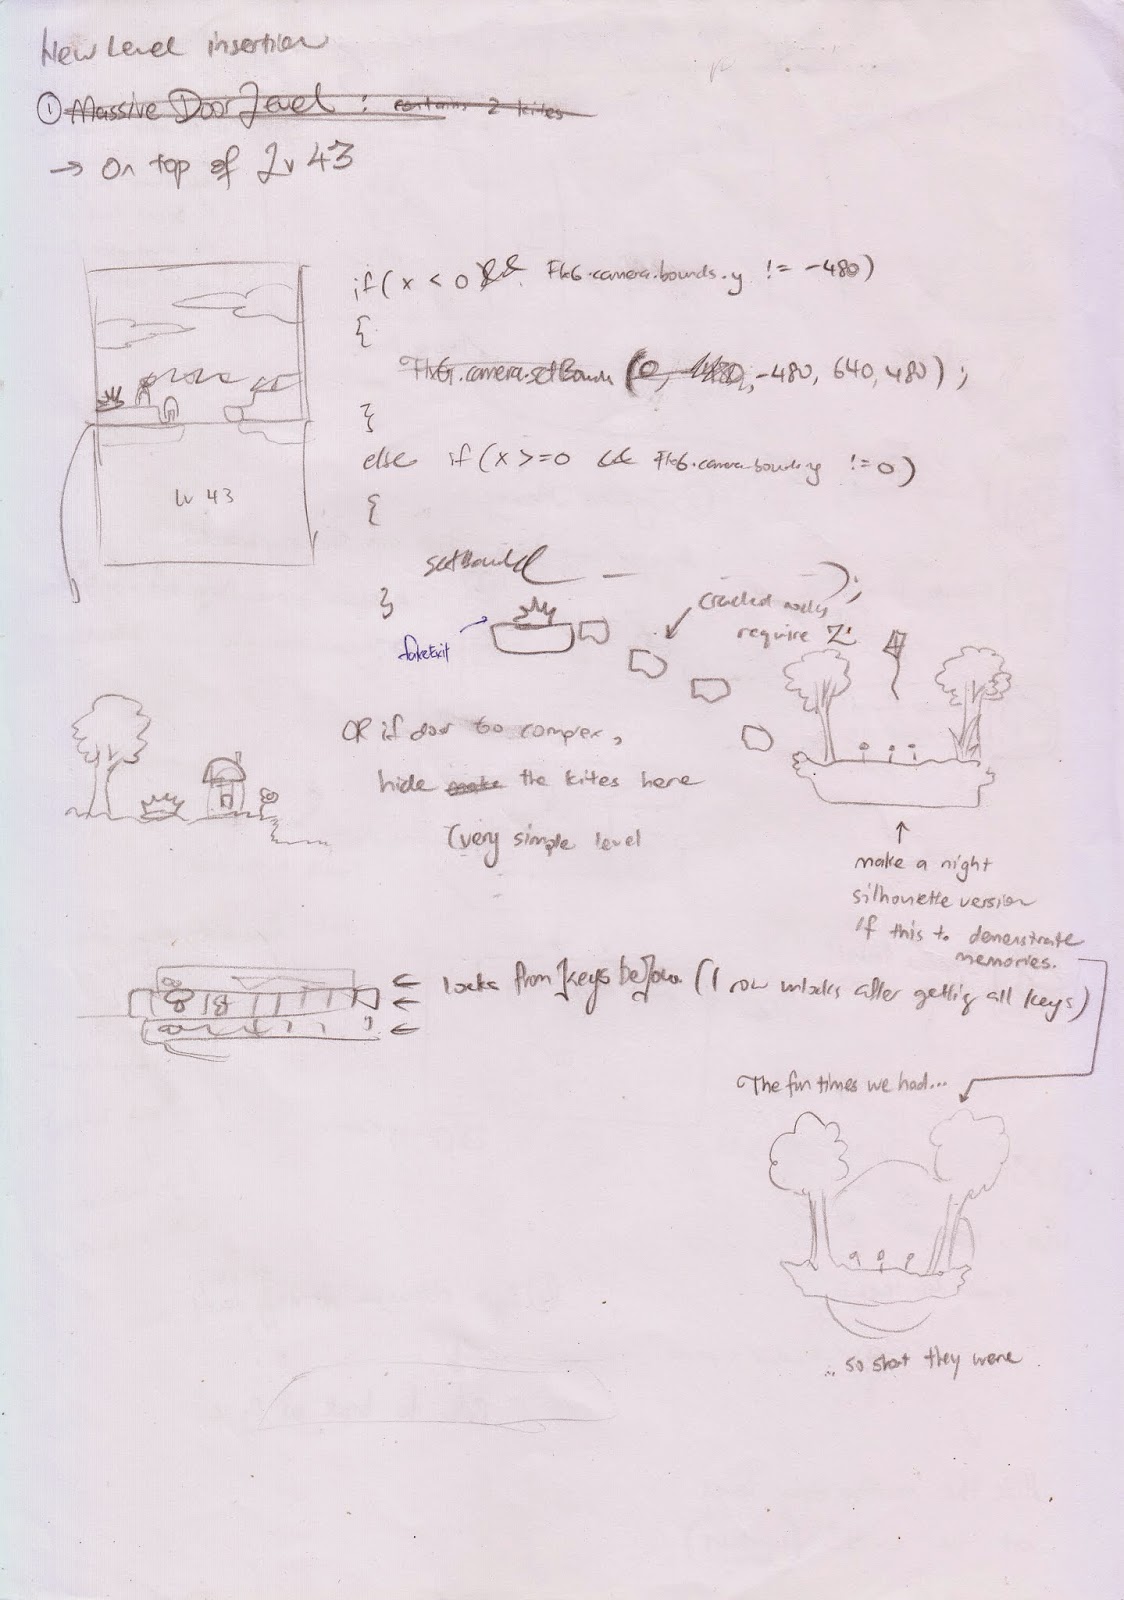 New Level insertion
① Massive Door Level : contains 2 kites
→ On top of Lv 43
if (x < 0 && FlxG.camera.bounds.y != -480)
{
FlxG.camera.setBounds (0, -480, 640, 480);
}
else if (x >= 0 && FlxG.camera.bounds.y != 0)
{
setBounds — );
}
Lv 43
fake exit
cracked
require Z
OR if door too complex,
hide make the kites here
(very simple level
make a night
silhouette version
of this to demonstrate
memories.
← locks from keys before (1 row unlocks after getting all keys)
←
←
The fun times we had...
... so short they were